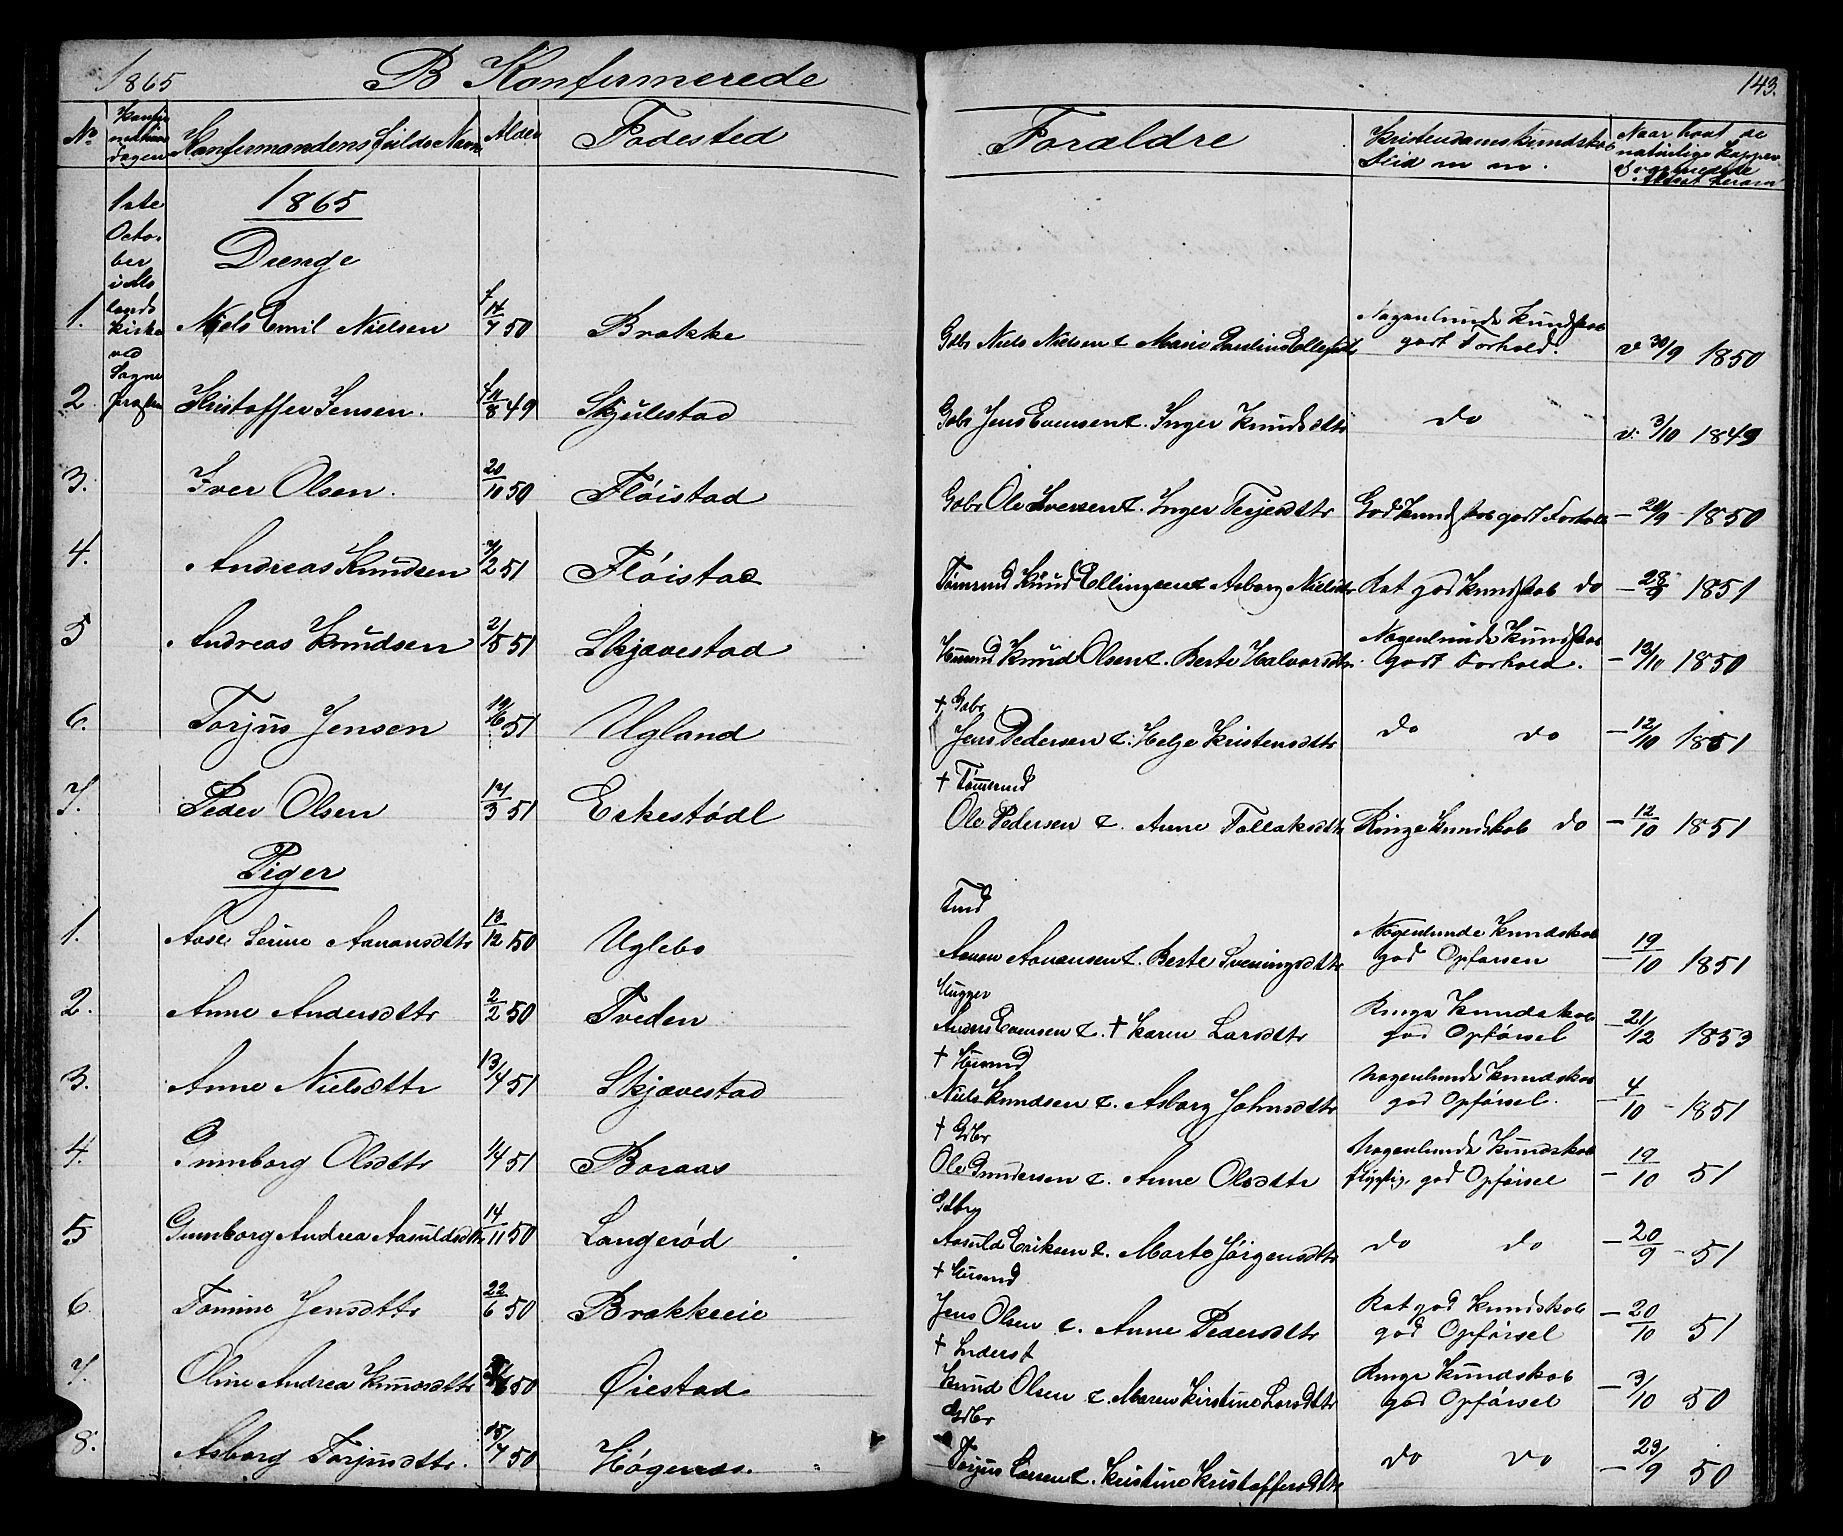 1865 B Konfirmerede 143.
No Konfirmations dagen Konfirmandens fulde Navn Alder Fodested Foraldre Kristendomskundskab Flid m m. Naar havt de naturlige Kopper
1ste October i kirke ved
1865
Drenge
1. Niels Emil Nielsen f 14/7 50 Brakke Gbr Niels Nielsen & Marie Pauline Nogenlunde Kundskab godt Forhold. v 30/9 1850
2 Kristoffer Jensen. f 11/8 49 Skjulestad Gbr Jens Evensen &. Inger Knudsdtr do v. 3/10 1849
3. Iver Olsen. 20/10 50 Flöistad Gbr Ole Iversen &. Inger Terjesdtr God Kundskab godt Forhold - 20/9 - 1850
4. Andreas Knudsen 7/2 51 Flöistad Knud Ellingsen & Asborg Nielsdtr Rat god Kundskab do - 28/9 1851
5 Andreas Knudsen 2/8 51 Skjævestad Husmd Knud Olsen &. Berte Halvorsdtr. Nogenlunde Kundskab godt Forhold. - 13/10 1850
6. Torjus Jensen 19/6 51 Ugland + Gbr
Jens Pedersen &. Helje Kristensdtr do do - 12/10 1851
7. Peder Olsen 17/3 51 Erkestödl +
Ole Pedersen &. Anne Tollaksdtr Ringe Kundskab do - 12/10 1851
Piger
1. Aase Serine Aanonsdtr 13/12 50 Uglebo
Aanon Aanonsen &. Berte Sveningsdtr Nogenlunde Kundskab god Opførsen - 19/10 1851
2. Anne Andersdtr 2/2 50 Tveden Hugger
Anders Evensen &. + Karen Larsdtr Ringe Kundskab god Opførsel - 21/12 1853
3. Anne Nielsdtr 13/4 51 Skjævestad + Husmd
Niels Knudsen &. Asborg Johnsdtr Nogenlunde Kundskab god Opførsel. - 4/10 - 1851
4. Gunborg Olsdtr 1/4 51 Boraas + Gdbr
Ole Gundersen &. Anne Olsdtr Nogenlunde Kundskab flygtig, god Opførsel - 19/10 51
5 Gunborg Andrea Aasuldsdtr 14/11 50 Langeröd Gdbr
Aasuld Eriksen &. Marte Jörgensdtr do do - 20/9 - 51
6. Tomine Jensdtr 22/6 50 Brakkeeie + Husmd
Jens Olsen &. Anne Pedersdtr Rat god Kundskab god Opførsel - 20/10 51
7. Oline Andrea Knudsdtr 50 Øiestad + Inderst
Knud Olsen &. Maren Kirstine Larsdtr Ringe Kundskab god Opførsel - 3/10 50
8. Asborg Torjusdtr. 15/7 50 Högenæs. Gdbr
Torjus Larsen &. Kristine Kristoffersdtr do do - 23/9 50